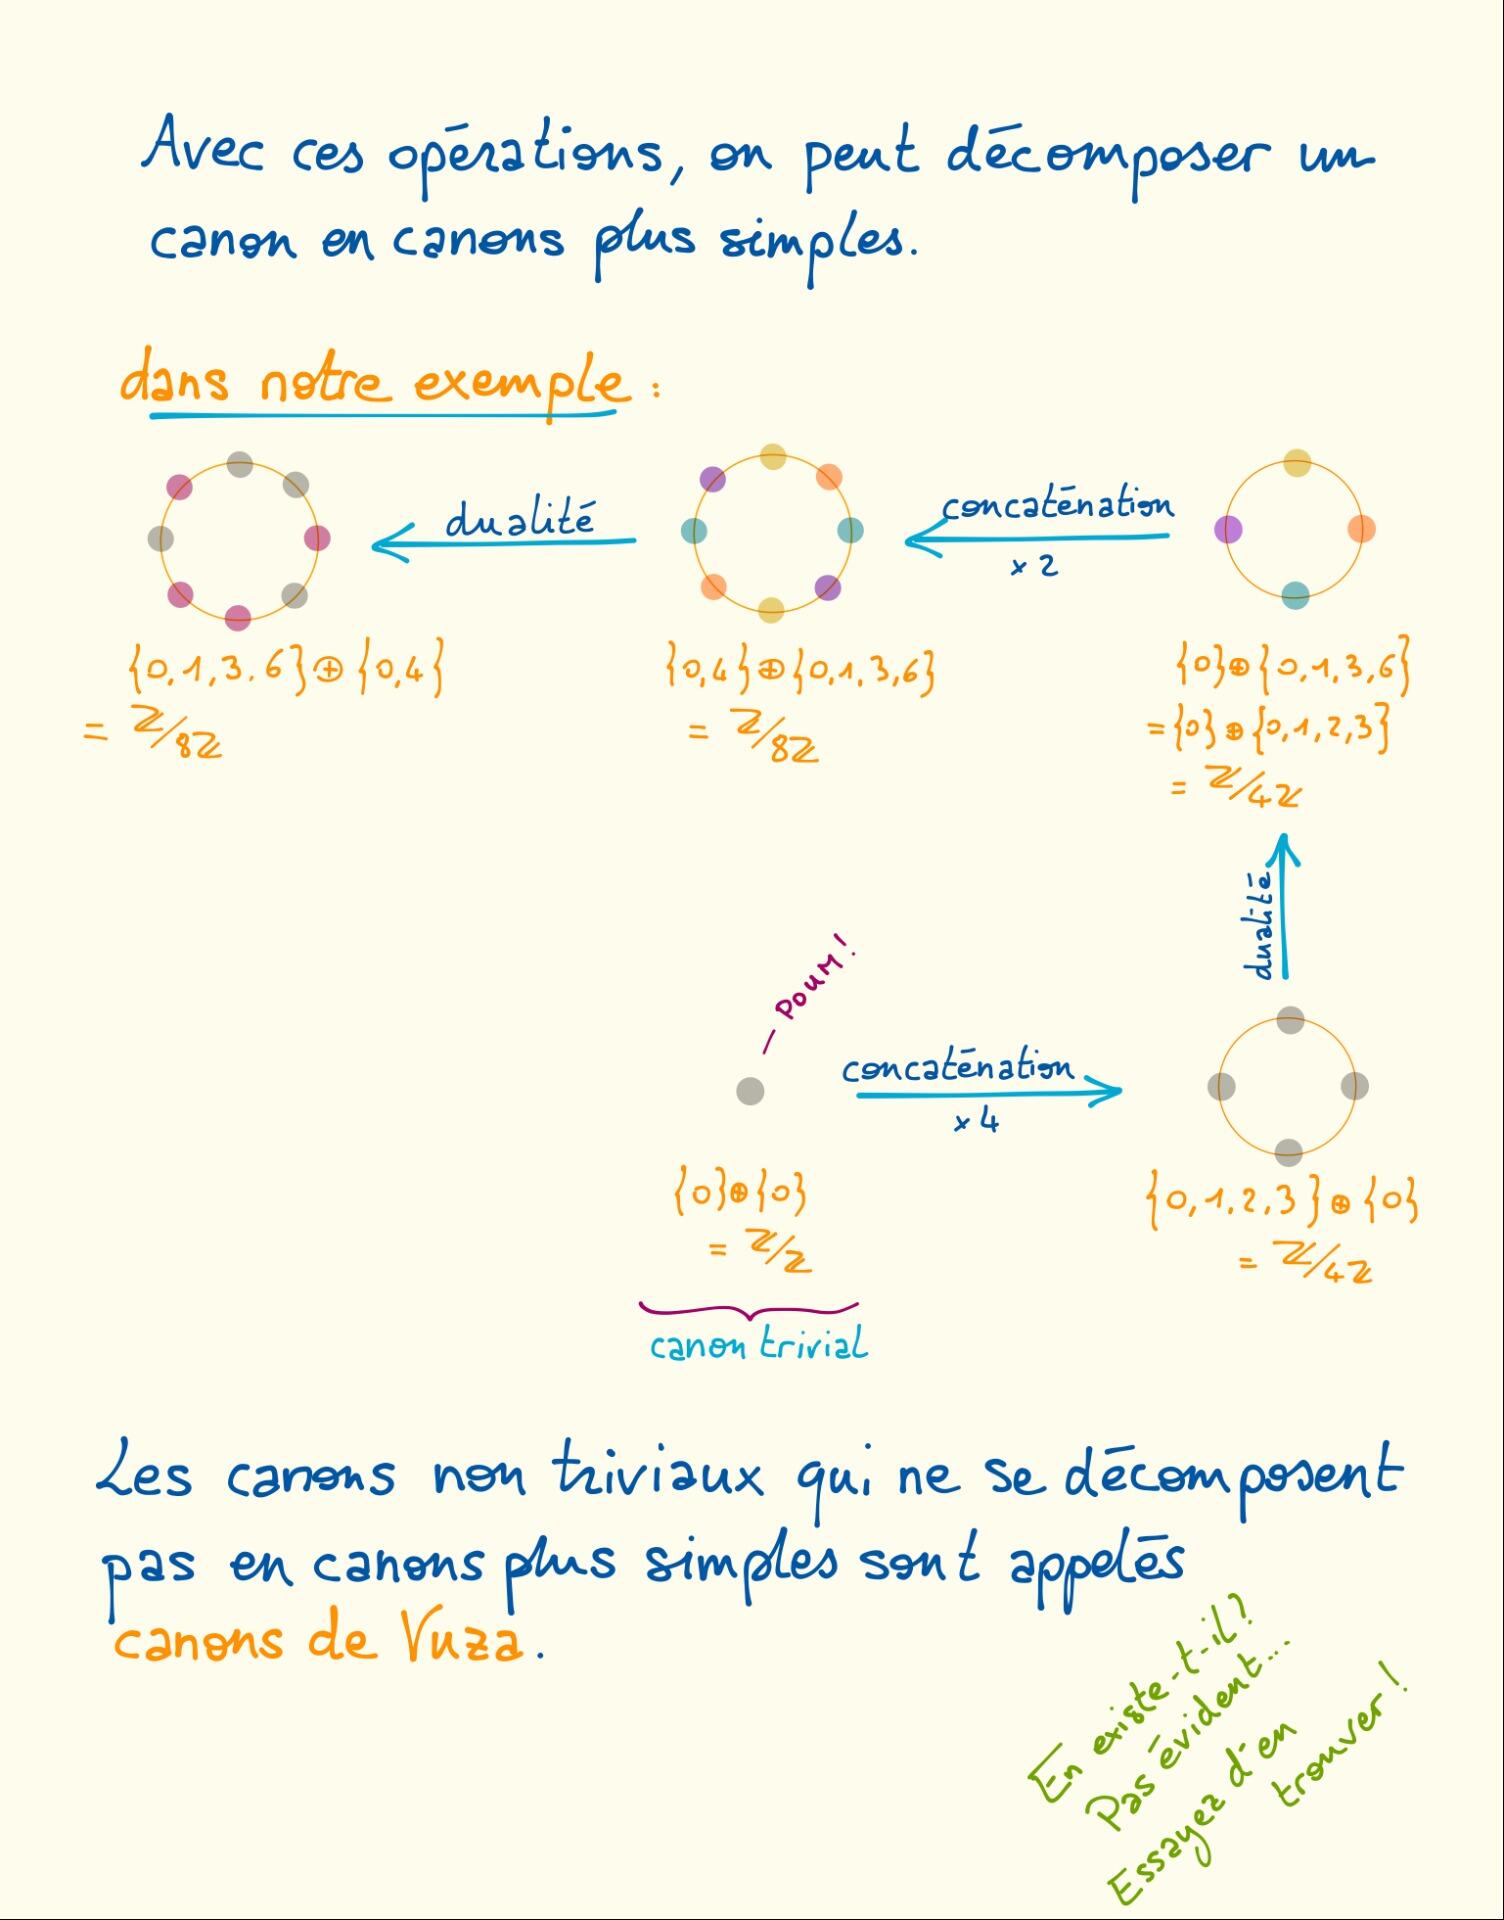 Avec ces opérations, on peut décomposer un
canon en canons plus simples.
dans notre exemple :
dualité
concaténation
x 2
{0,1,3.6}⊕{0,4}
= ℤ/8ℤ
{0,4}⊕{0,1,3,6}
= ℤ/8ℤ
{0}⊕{0,1,3,6}
={0}⊕{0,1,2,3}
= ℤ/4ℤ
dualité
poum!
concaténation
x 4
{0}⊕{0}
= ℤ/ℤ
{0,1,2,3}⊕{0}
= ℤ/4ℤ
canon trivial
Les canons non triviaux qui ne se décomposent
pas en canons plus simples sont appelés
canons de Vuza.
En existe-t-il?
Pas évident...
Essayez d'en
trouver!